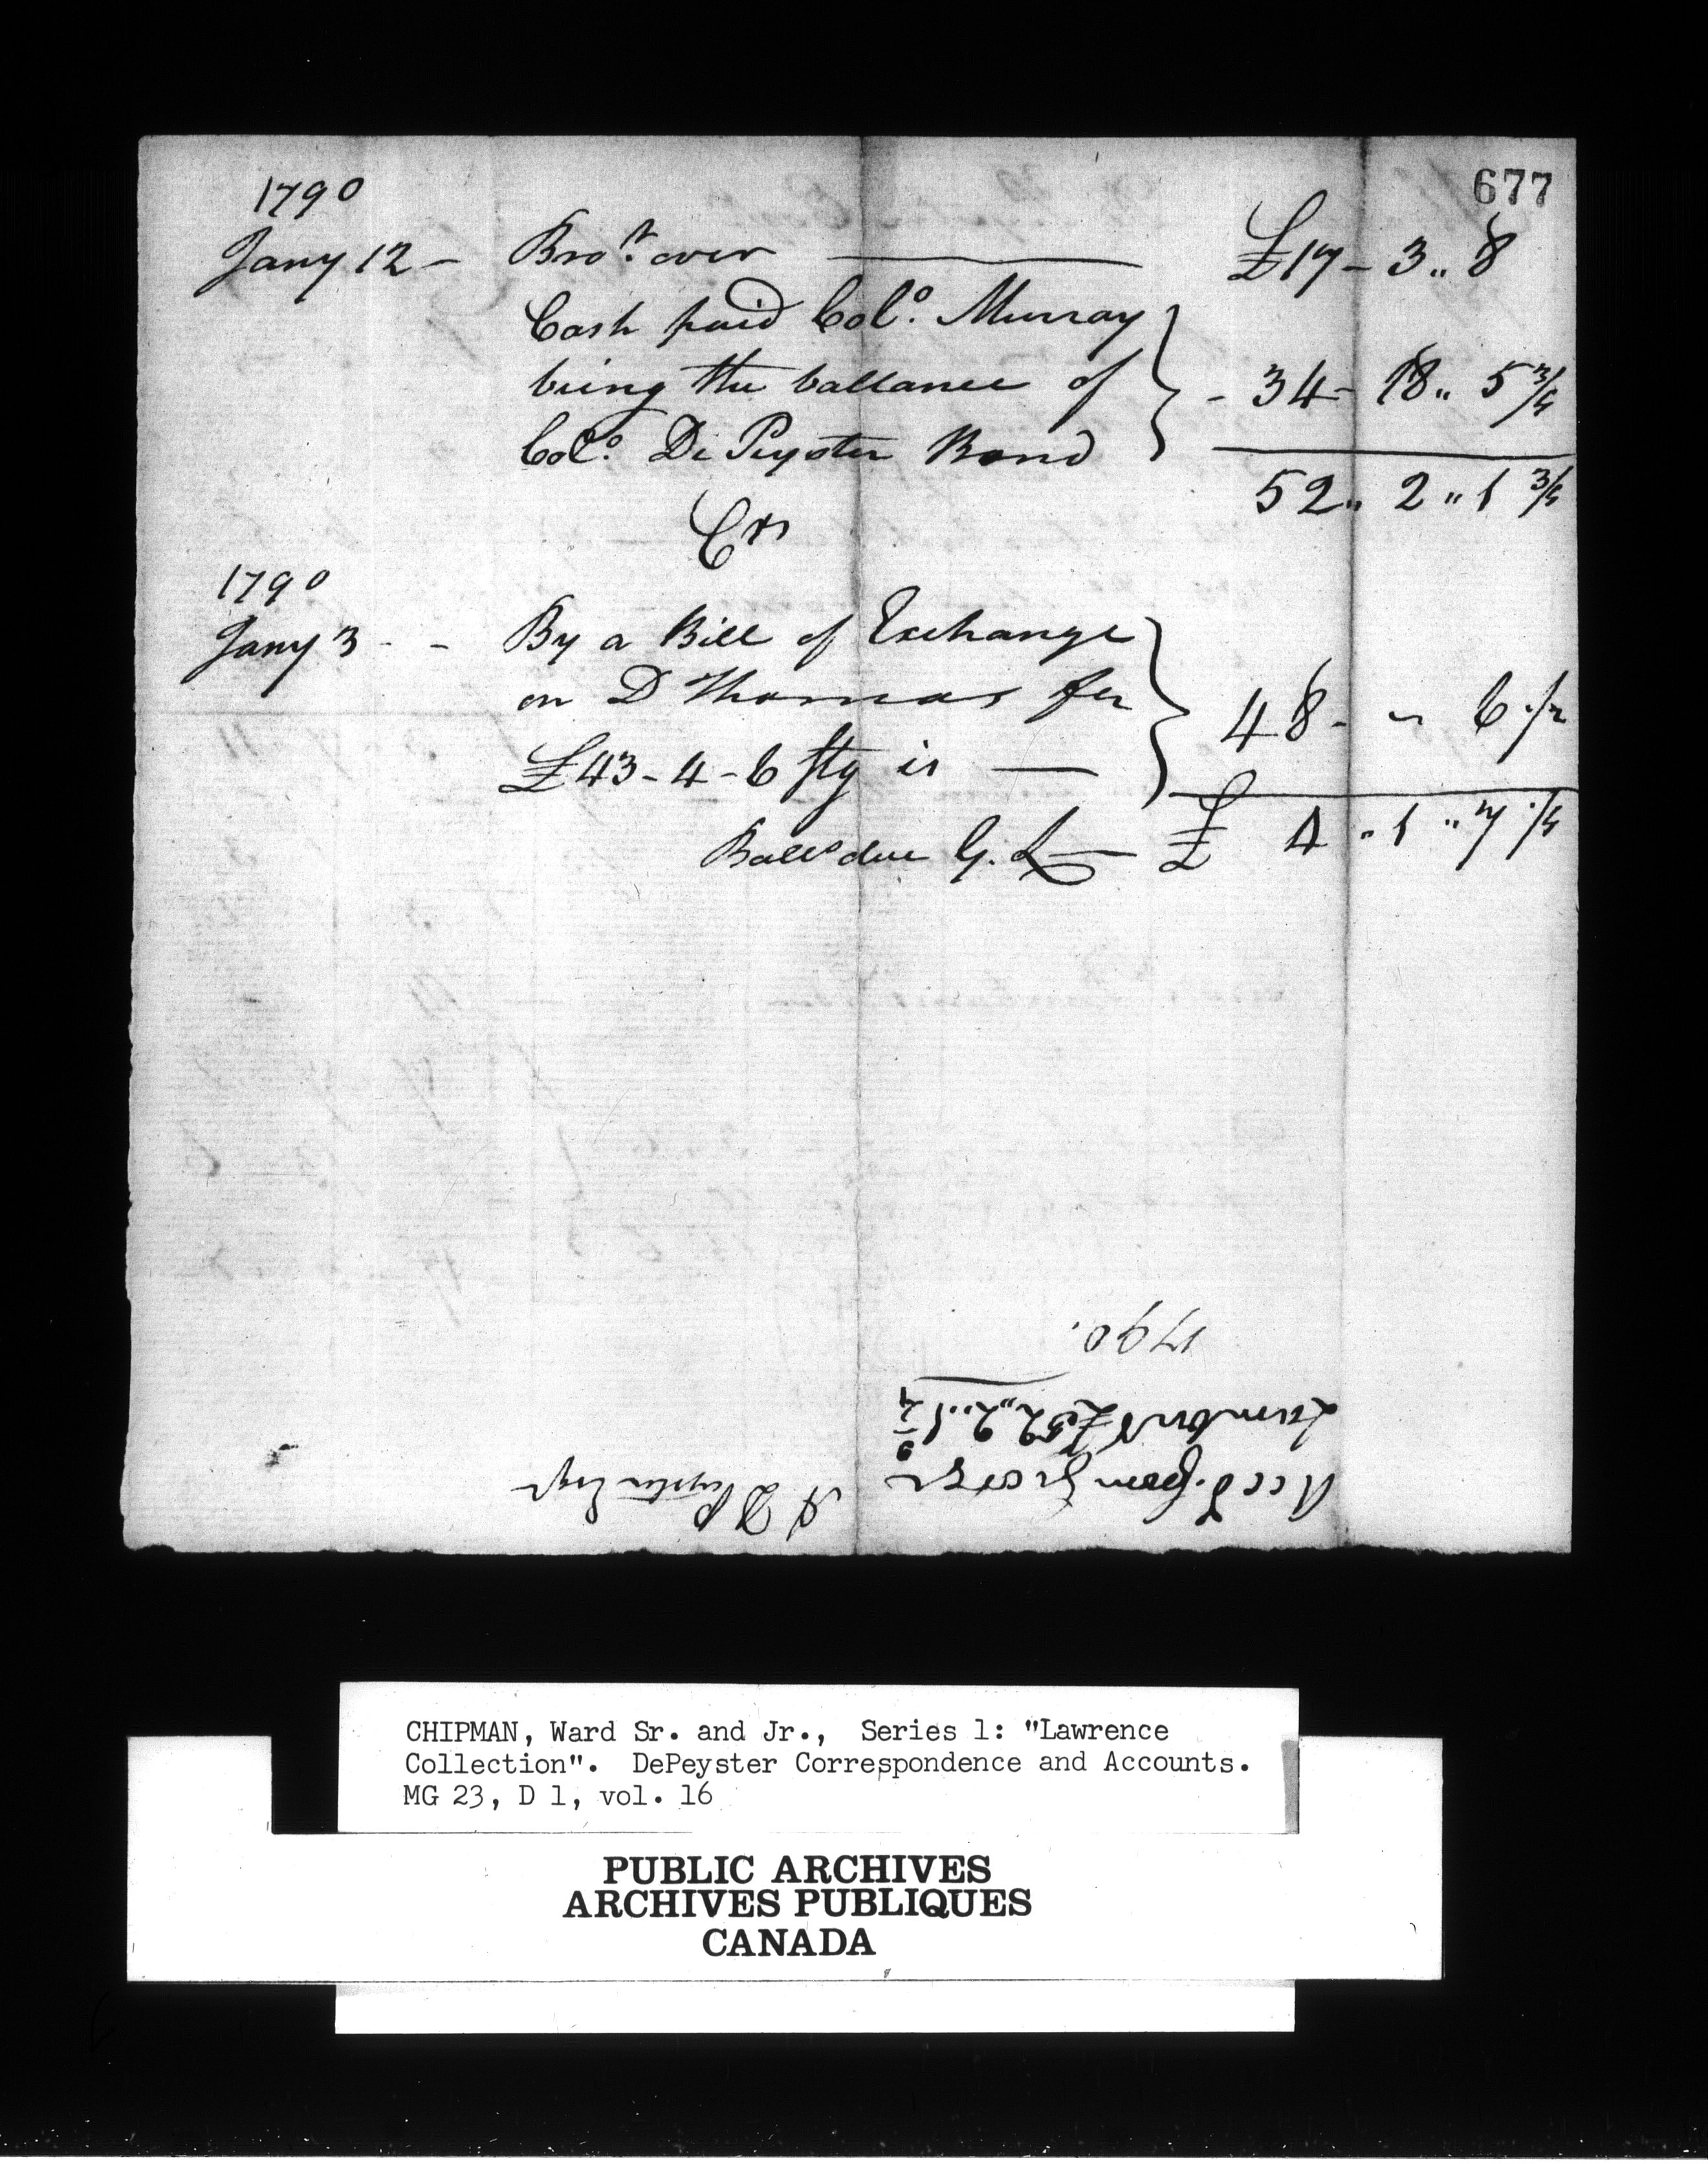 677
1790
Jany 12 - Bro.t over £17 - 3 " 8
Cash paid Col.o Murray
being the ballance of - 34 - 18 " 5 3/4
Col.o De Peyster Bond
52 " 2 " 1 3/4
Crs
1790
Jany 3 - - By a Bill of Exchange
on D Thomas for 48 - " 6 1/2
£43 - 4 - 6 Stg is
Balle due G. L £ 4 " 1 " 7 1/4
A D Peyster Esqr
Acct. from George
Lambert £52 " 2 " 1 3/4
1790.
CHIPMAN, Ward Sr. and Jr., Series 1: "Lawrence
Collection". DePeyster Correspondence and Accounts.
MG 23, D 1, vol. 16
PUBLIC ARCHIVES
ARCHIVES PUBLIQUES
CANADA